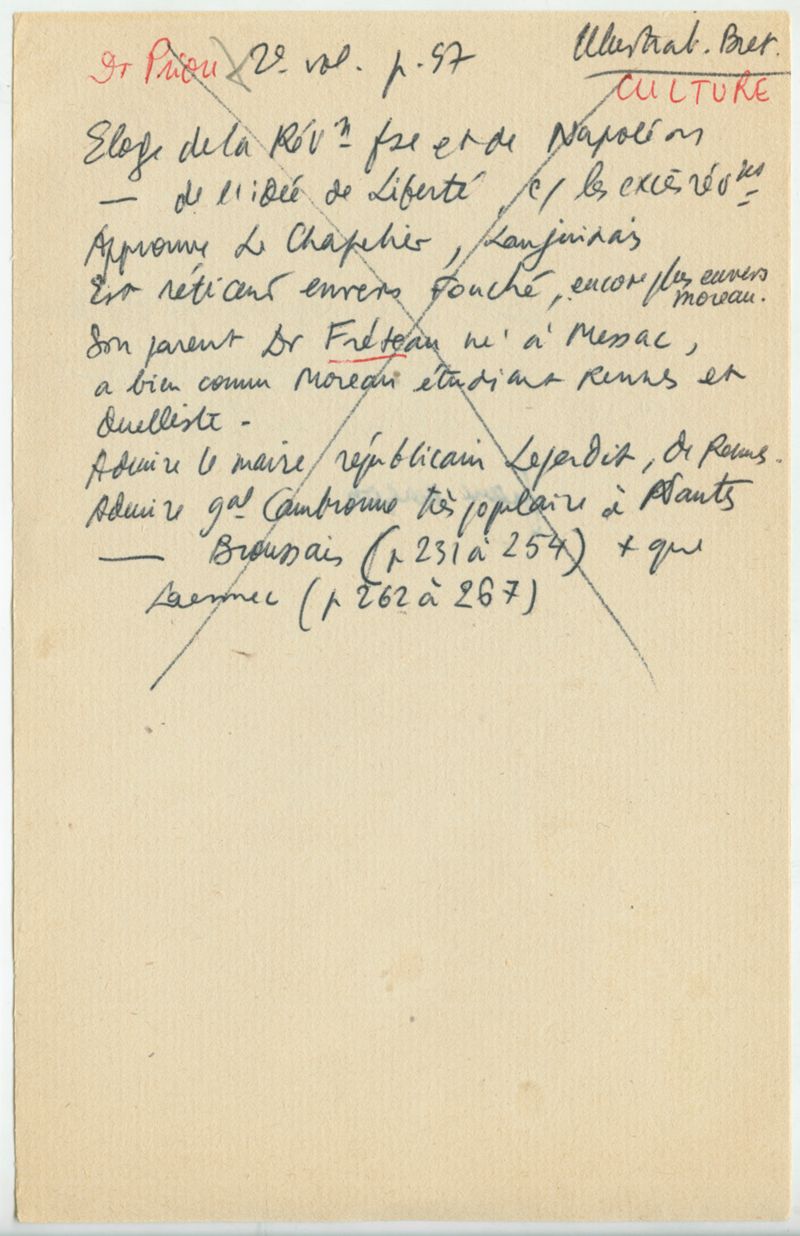 Dr Priou 2e vol. p. 97 Illustrat. Bret.
CULTURE
Eloge de la Révn fse et de Napoléon
— de l'idée de Liberté, c/ les excès révres
Approuve Le Chapelier, Lanjuinais
Est réticent envers Fouché, encore plus envers
Moreau.
Son parent Dr Fréteau né à Messac,
a bien connu Moreau étudiant Rennes et
duelliste -
Admire le maire républicain Leperdit, de Rennes.
Admire gal Cambronne très populaire à Nantes
— Broussais (p 231 à 254) + que
Laennec (p 262 à 267)